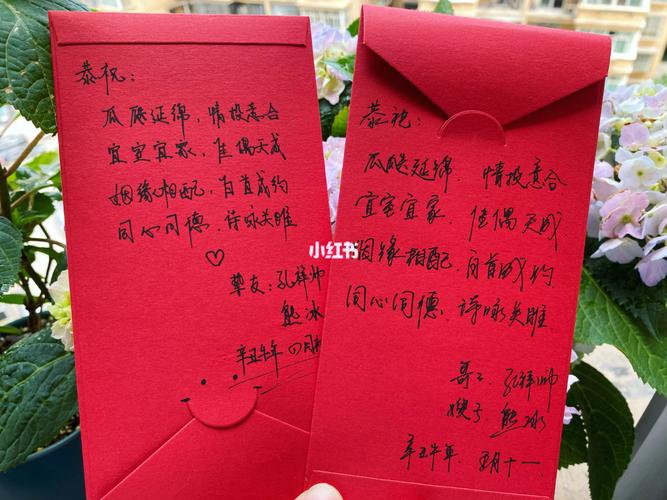 恭祝：
瓜瓞延绵，情投意合
宜室宜家，佳偶天成
姻缘相配，白首成约
同心同德，诗咏关雎
挚友：孔祥帅
熊冰
辛丑牛年 四月
小红书
恭祝：
瓜瓞延绵，情投意合
宜室宜家，佳偶天成，
姻缘相配，白首成约，
同心同德，诗咏关雎.
哥哥：孔祥帅
嫂子：熊冰
辛丑牛年. 五月十一